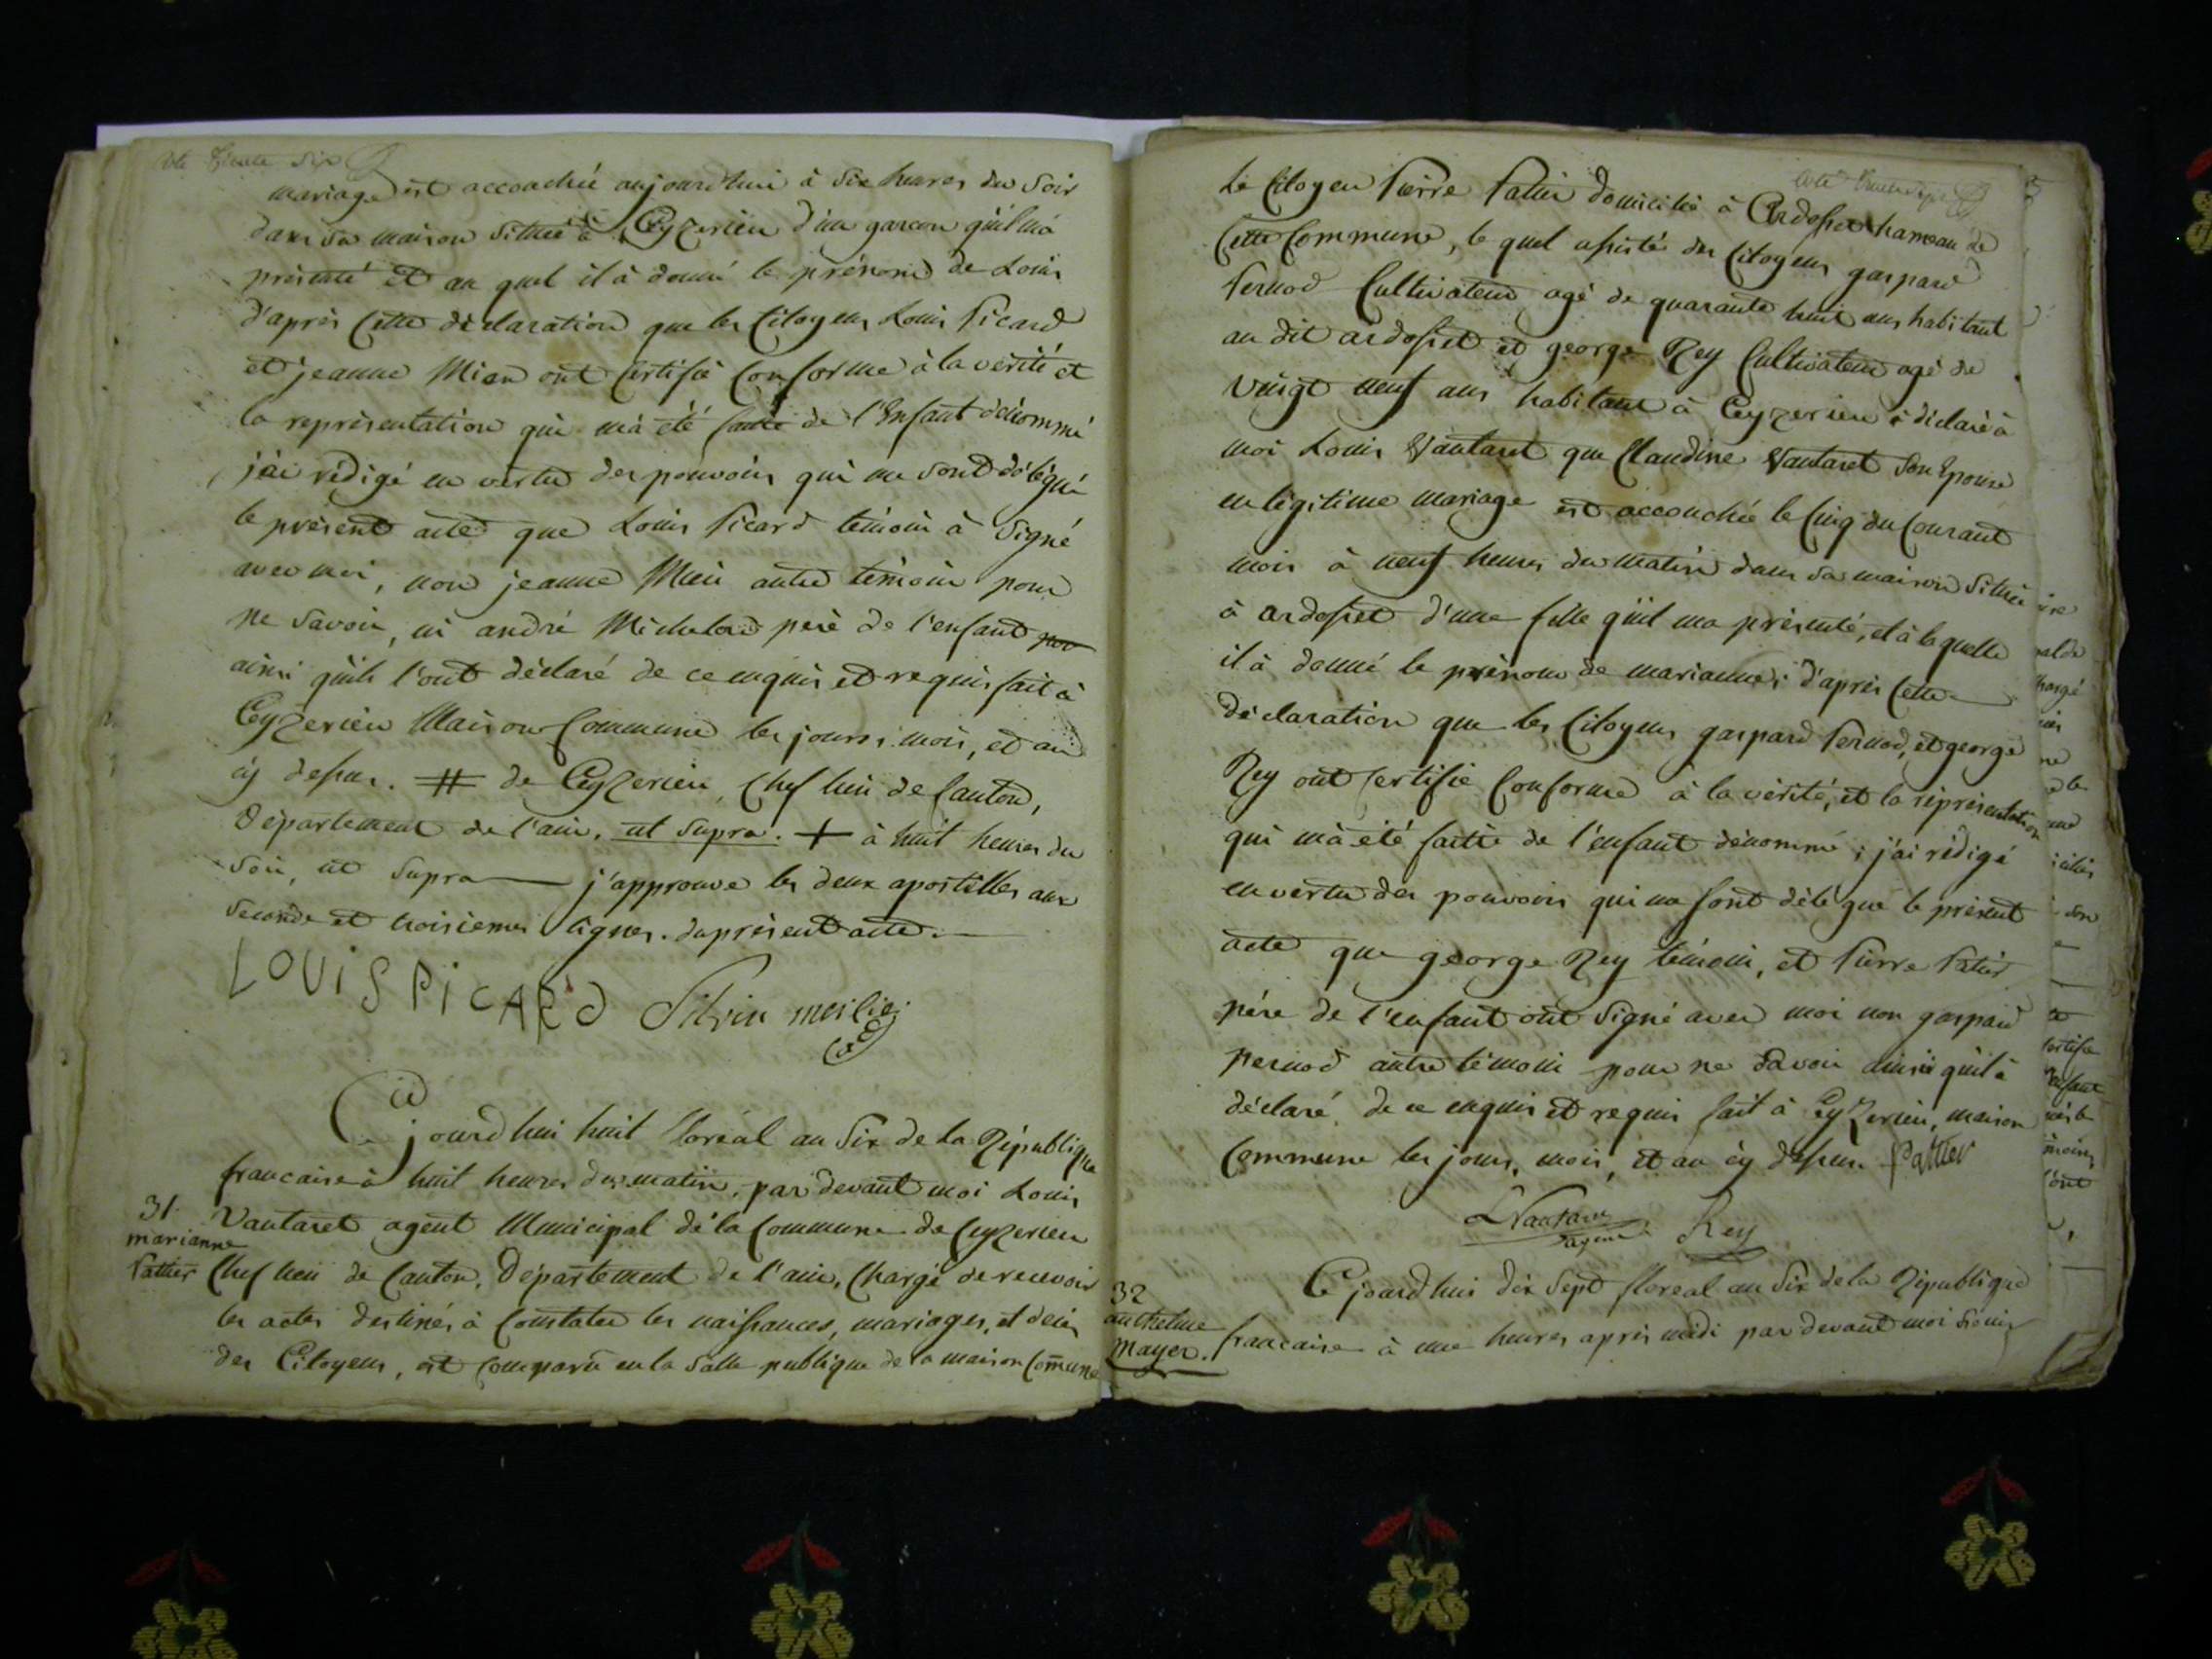 Cote trente six
mariage est accouchée aujourdhui à six heures du soir
dans sa maison située à Ceyzerieu d'un garcon qu'il m'a
présenté et au quel il à donné le prénom de Louis
d'après Cette déclaration que les Citoyens Louis Picard
et jeanne Mian ont Certifié Conforme à la vérité et
la représentation qui m'à été faitte de l'Enfant dénommé
j'ai rédigé en vertu des pouvoirs qui me sont délégué
le présent acte que Louis Picard témoin à signé
avec moi, non jeanne Mian autre témoin pour
ne savoir, ni andré Michelard père de l'enfant
ainsi qu'ils l'ont déclaré de ce enquis et requis fait à
Ceyzerieu Maison Commune les jours, mois, et an
cy dessus. # de Ceyzerieu, Chef lieu de Canton,
Département de l'ain, ut supra. + à huit heures du
soir, ut supra j'approuve les deux apostilles aux
seconde et troisieme lignes. du présent acte.
LOUIS PICARD Silvin
Ce jourdhui huit floréal an Six de la République
francaise à huit heures du matin, par devant moi Louis
31. Vautaret agent Municipal de la Commune de Ceyzerieu
marianne
Pattier Chef lieu de Canton, Département de l'ain, Chargé de recevoir
les actes destinés à Constater les naissances, mariages, et décès
des Citoyens, est comparu en la salle publique de la maison Commune
Cote trente sept
Le Citoyen Pierre Patier domicilié à Ardosset hameau de
Cette Commune, le quel assisté des Citoyens gaspard
Pernod Cultivateur agé de quarante huit ans habitant
au dit ardosset et george Rey Cultivateur agé de
vingt neuf ans habitant à Ceyzerieu à déclaré à
moi Louis Vautaret que Claudine Vautaret son Epouse
en légitime mariage est accouchée le Cinq du Courant
mois à neuf heures du matin dans sa maison située
à ardosset d'une fille qu'il ma présenté, et à la quelle
il à donné le prénom de marianne; d'après Cette
déclaration que les Citoyens gaspard Pernod, et george
Rey ont Certifié Conforme à la vérité, et la représentation
qui m'à été faitte de l'enfant dénommé; j'ai rédigé
en vertu des pouvoirs qui me sont délégué le présent
acte que george Rey témoin, et Pierre Patier
père de l'enfant ont signé avec moi non gaspard
pernod autre témoin pour ne savoir ainsi qu'il à
déclaré de ce enquis et requis fait à Ceyzerieu, maison
Commune les jours, mois, et an cy dessus. Pattier
LVautaret
agent Rey
Ce jourdhui dix sept floreal an Six de la République
32
anthelme
mayer. francaise à une heures après midi par devant moi Louis